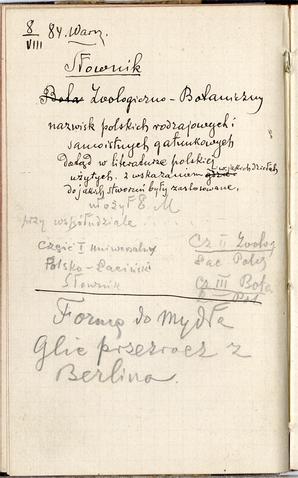 8/VIII 84. Warsz.
Słownik
Bota Zoologiczno-Botaniczny
nazwisk polskich rodzajowych i
samoistnych gatunkowych
dotąd w literaturze polskiej
użytych. z wskazaniem w jakich dziełach
do jakich stworzeń były zastosowane.
ułożył E. M
przy współudziale
Część I Uniwersalny
Polsko-Łaciński
Słownik
Cz II Zoolog
Łac Pols
Cz III Bota
Formę do mydła
Glie przezrocz z
Berlina.